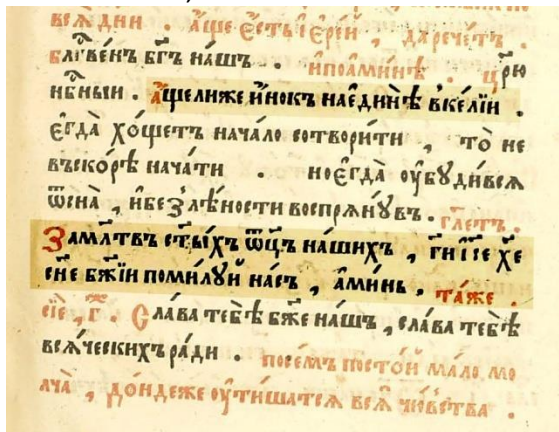 всѧ̀ дни . а҆́ще є҆́сть і҆ере́й , да рече́тъ .
блгⷭ҇ве́нъ бг҃ъ на́шъ . и҆ по а҆ми́нѣ . цр҃ю
нбⷭ҇ныи . а҆́ще ли же и҆́нокъ на є҆ди́нѣ в ке́лїи .
є҆гда̀ хо́щетъ нача́ло сотвори́ти , то̀ не
въско́рѣ нача́ти . но є҆гда̀ ᲂу҆бꙋди́всѧ
ѿ сна̀ , и҆ без̾ лѣ́ности воспрѧнꙋ́въ . гл҃етъ .
За мл҃твъ ст҃ы́хъ ѿц҃ъ на́шихъ , гдⷭ҇и і҆с҃е хрⷭ҇те
сн҃е бж҃їи поми́лꙋй на́съ , а҆ми́нь , та́же .
сїѐ , г҃ . Сла́ва тебѣ̀ бж҃е на́шъ , сла́ва тебѣ̀
всѧ́ческихъ ра́ди . посе́мъ посто́й ма́ло мо
лча̀ , до́ндеже ᲂу҆тиша́тсѧ всѧ̀ чю́вства .